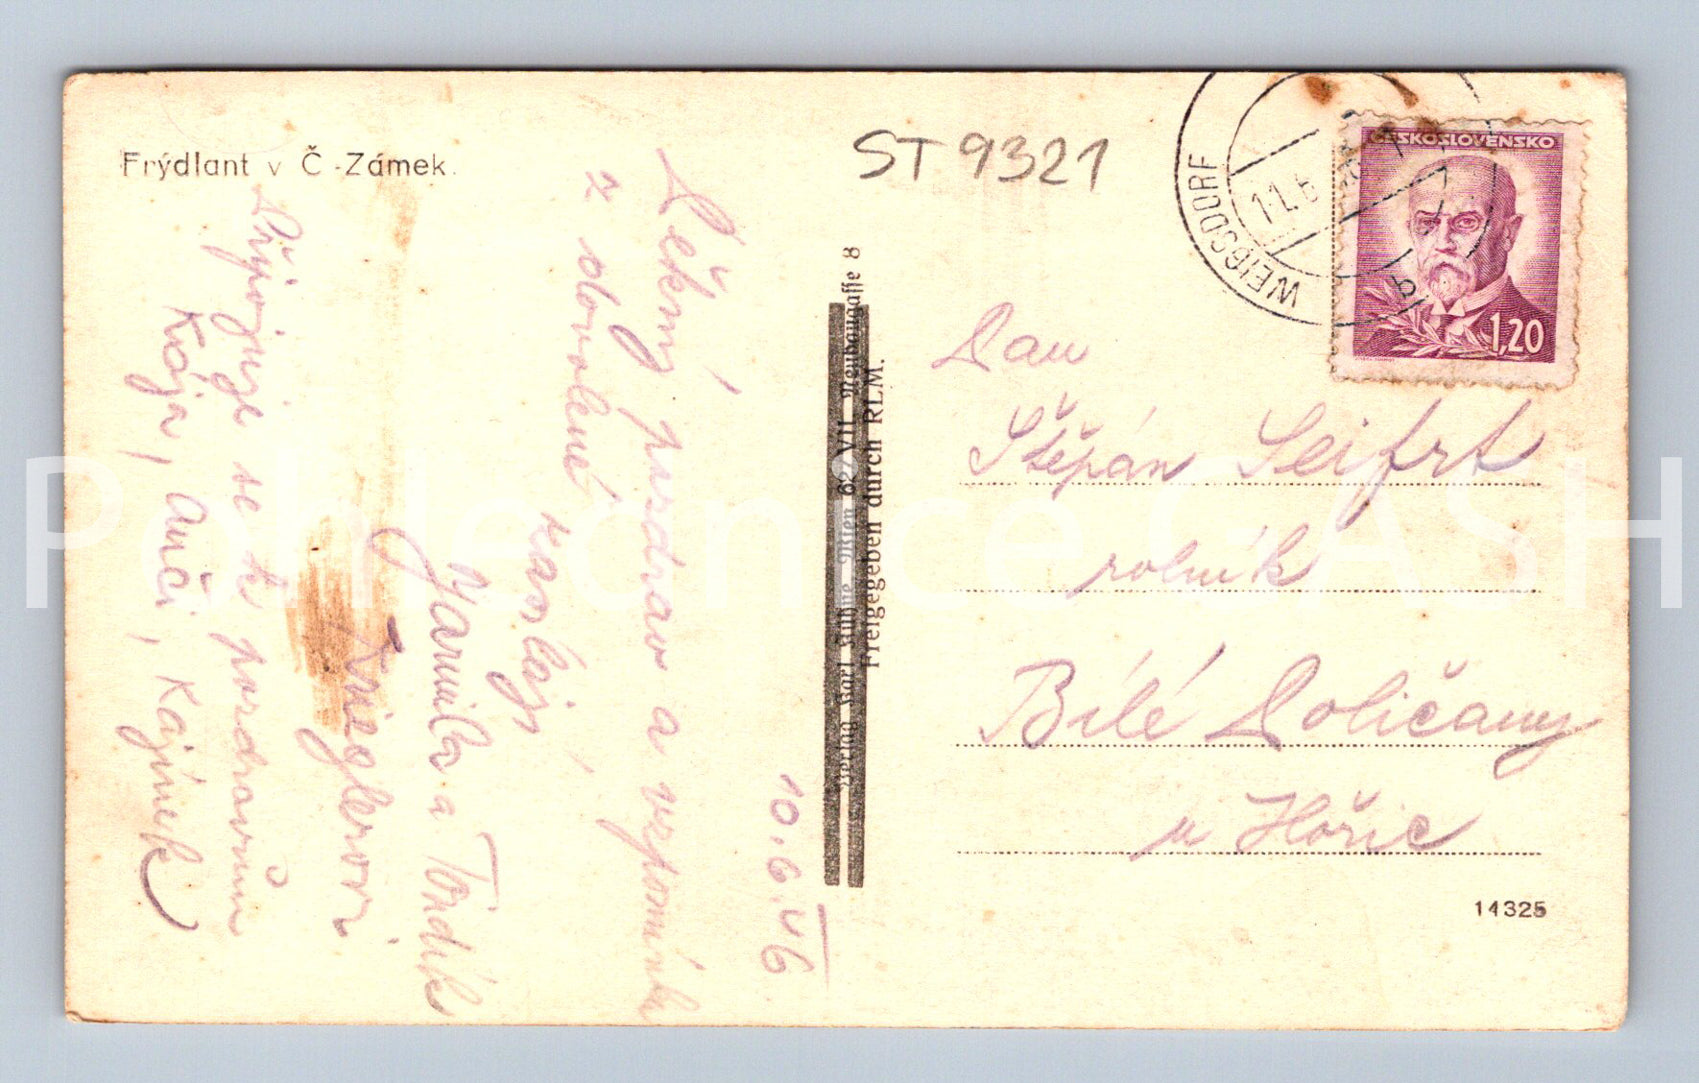 Frýdlant v Č -Zámek.
ST 9321
WEIGSDORF
11.6
b
ČESKOSLOVENSKO
1,20
10.6.46
Pěkný pozdrav a vzpomínku
z dovolené
zasílají
Jarmila a Toník
Zieglerovi
Připojuje se k pozdravům
Kája, Anči, Kájínek
Verlag Karl Kühne Wien 62/VII Neubaugasse 8
Freigegeben durch RLM.
Pan
Štěpán Seifrt
rolník
Bílé Poličany
u Hořic
14325
Pohlednice GASH